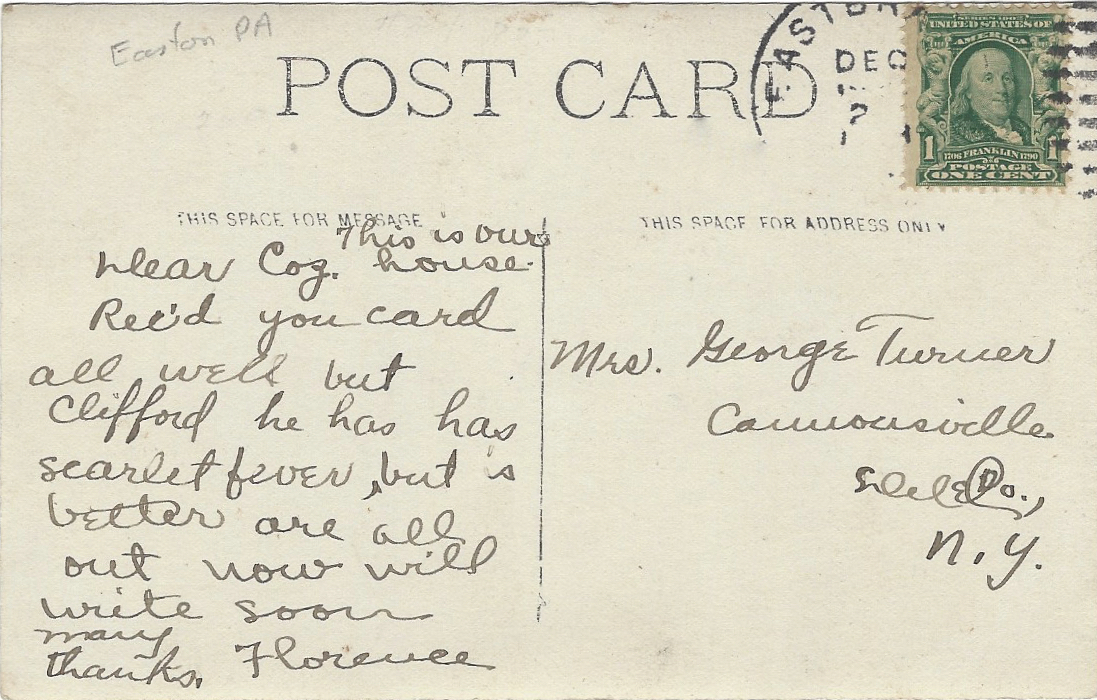 Easton PA
POST CARD
EASTON
DEC
SERIES 1902
UNITED STATES OF
AMERICA
1 1706 FRANKLIN 1790 1
POSTAGE
ONE CENT
THIS SPACE FOR MESSAGE
THIS SPACE FOR ADDRESS ONLY
This is our
Dear Coz. house.
Rec'd you card
all well but
Clifford he has has
scarlet fever, but is
better are all
out now will
write soon
many
thanks, Florence
Mrs. George Turner
Cannonsville
Del. Co.,
N.Y.